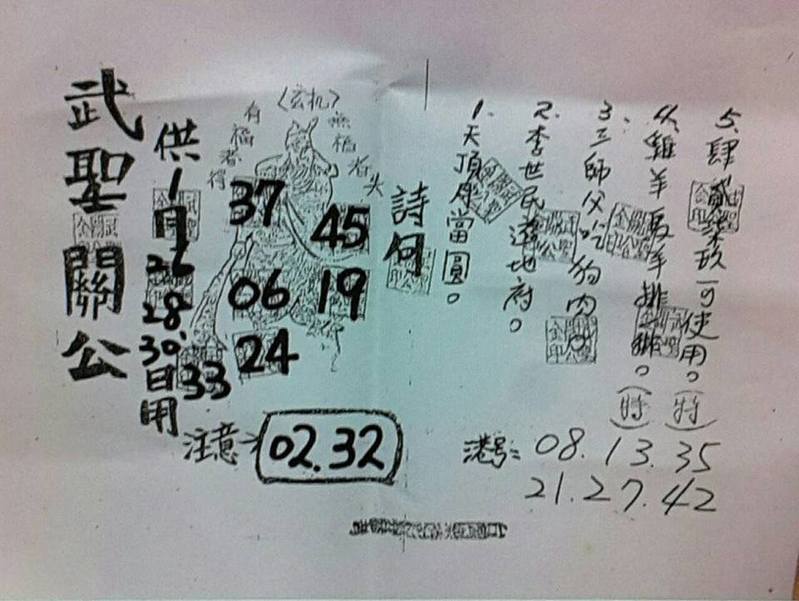 武聖關公
供1月26.28.30.日用
〈玄机〉
有福者得
無福者失
37
45
06
19
24
33
注意→
02.32
詩句
1.天頂月當圓。
2.李世民遊地府。
3.三師父吃狗肉
4.雞羊兩字排。(特)
5.肆貳柒玖可使用。(特)
港号:08.13.35
21.27.42